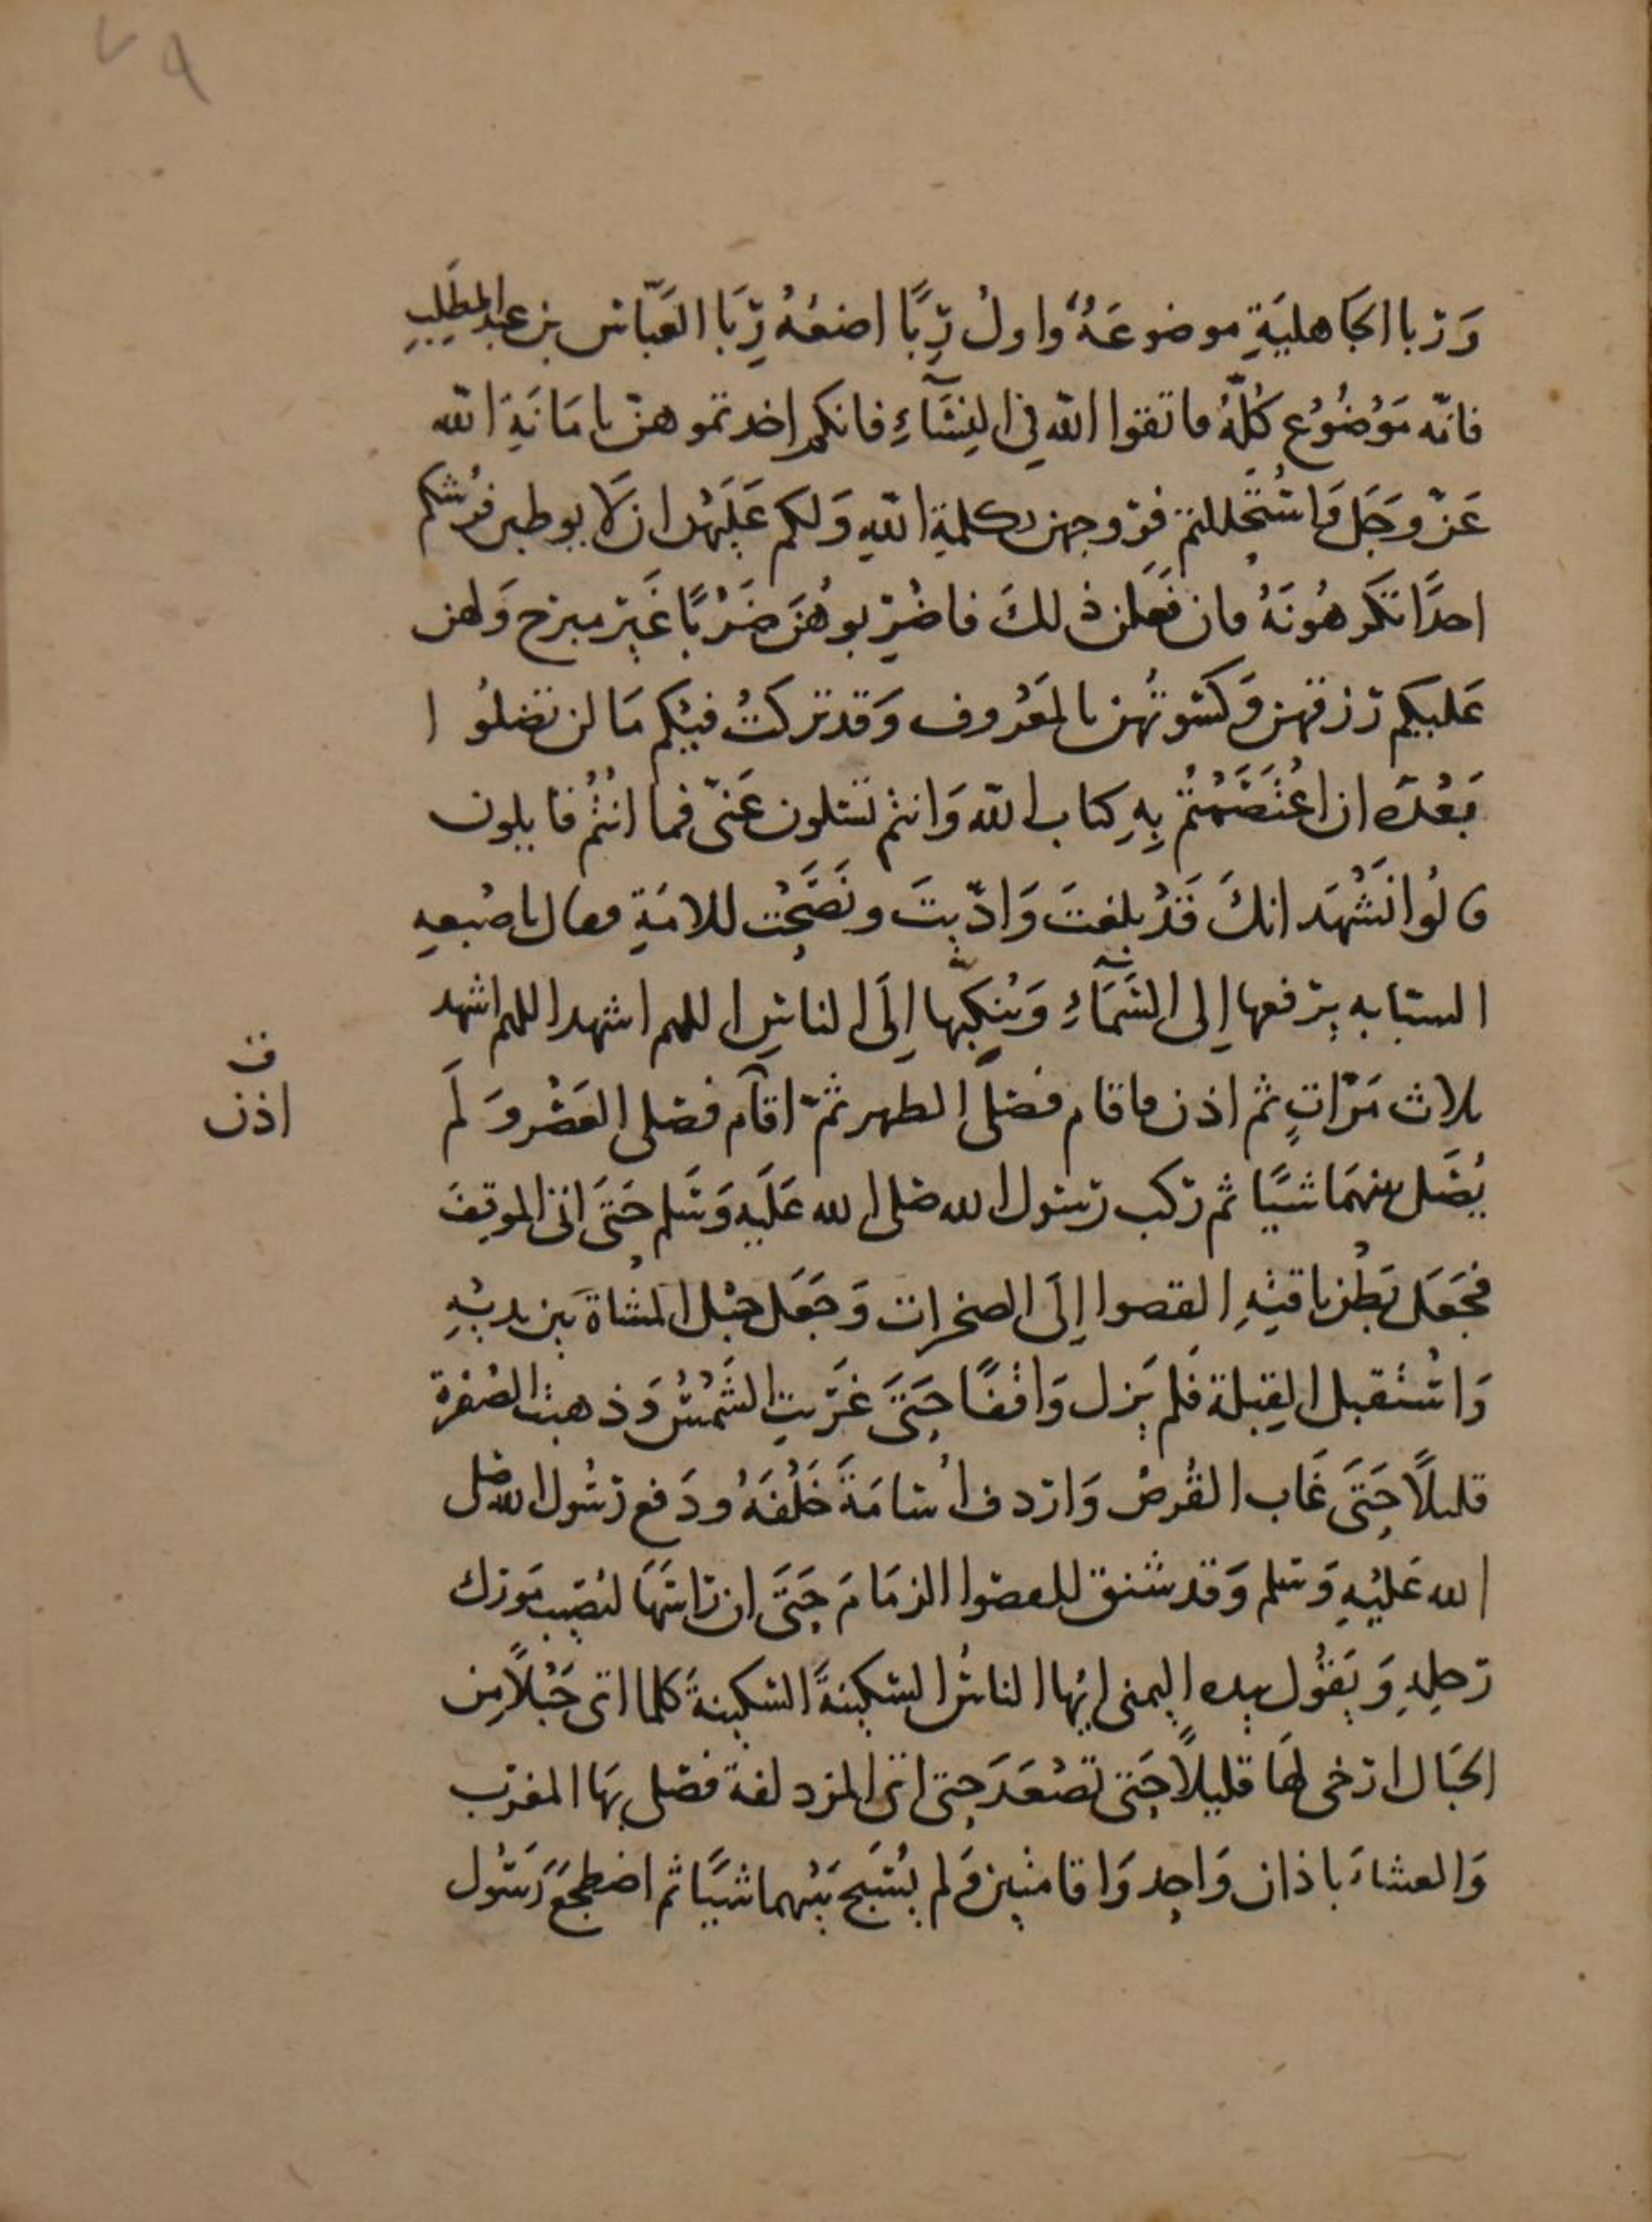 ٧٩
وَربا الجَاهليَةِ موضوعَةٌ واولُ رِبًا اضعُهُ رِبَا العَبّاس بن عبد المطّلِبِ
فانّه مَوْضُوْع كُلّهُ فاتقوا الله في النِسَآءِ فانكم اخدتموهنّ بامَانَةِ الله
عَزّ وَجَل وَاسْتَحْللتم فروجهن بكلمةِ اللّهِ وَلكم عَلَيْهن ان لا يوطين فرشكم
احدًا تكرهُونَهُ فان فَعَلن ذلكَ فاضْربوهُنَ ضَرْبًا غَير مبرح وَلهن
عَليكم رزقهن وَكسْوتُهن بالمَعْروف وَقد تركتُ فيْكم مَا لن تضلُوا
بَعْدَه ان اعْتَصَمْتُمْ بِهِ كتاب الله وَانتم تسَلون عَنىّ فما انْتُمْ قايلون
قالُوا نَشْهَد انكَ قَدْ بلغتَ وَادّيتَ ونَصَحْت للامَةِ فقال باصْبعهِ
السبابه يرفعها إلى السَّمَآءِ وَينكتها إلَى الناسِ اللهم اشهد اللهم اشهد
ثلاث مَرّاتٍ ثم اذن فاقام فصَلىَّ الظهر ثمّ اقام فصَلى العَصْر وَلَم
ت
اذن
يُصَل بينهمَا شيًا ثم ركب رسول الله صلى الله عَلَيهِ وَسَلم حَتَى اتى الموقِفَ
فجَعَل بَطْن ناقتِهِ القصوا إلَى الصخرات وَجَعَل حَبْل المُشاة بَين يديْهِ
وَاسْتقبل القِبلة فلم يَزل وَاقفًا حَتَى غَرَبتِ الشَمْسُ وَذهبت الصُفرة
قليلًا حَتَى غَاب القُرصُ وَاردف اُسَامَةَ خَلْفَهُ ودَفع رسُول الله صلى
الله عَليْهِ وَسلم وَقد شنق للقصوا الزمَامَ حَتَى ان رَاسَهَا ليُصيب مَورك
رَحلِهِ وَيَقُول بيده اليمنى ايُها الناسُ السَكينةَ السَكينةَ كلما اتى حَبْلًا مِن
الحبَال ارخى لهَا قليلًا حَتى تصْعَدَ حَتى اتى المزدلفة فصَلى بهَا المغرب
وَالعشاءَ باذان وَاحِد وَاقامتين وَلم يُسَبح بَيْنهما شيًا ثم اضطجعَ رَسُول